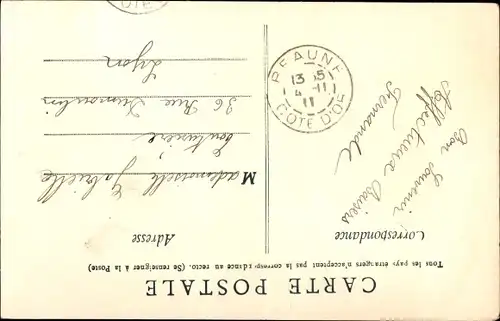 CARTE POSTALE
Tous les pays étrangers n'acceptent pas la correspondance au recto. (Se renseigner à la Poste)
Correspondance
Adresse
Bon Souvenir
Affectueux Baisers
Fernande
Mademoiselle Gabrielle
Couturière
36 Rue Dumoulin
Lyon
BEAUNE
13 15
4 - 11
11
COTE D'OR